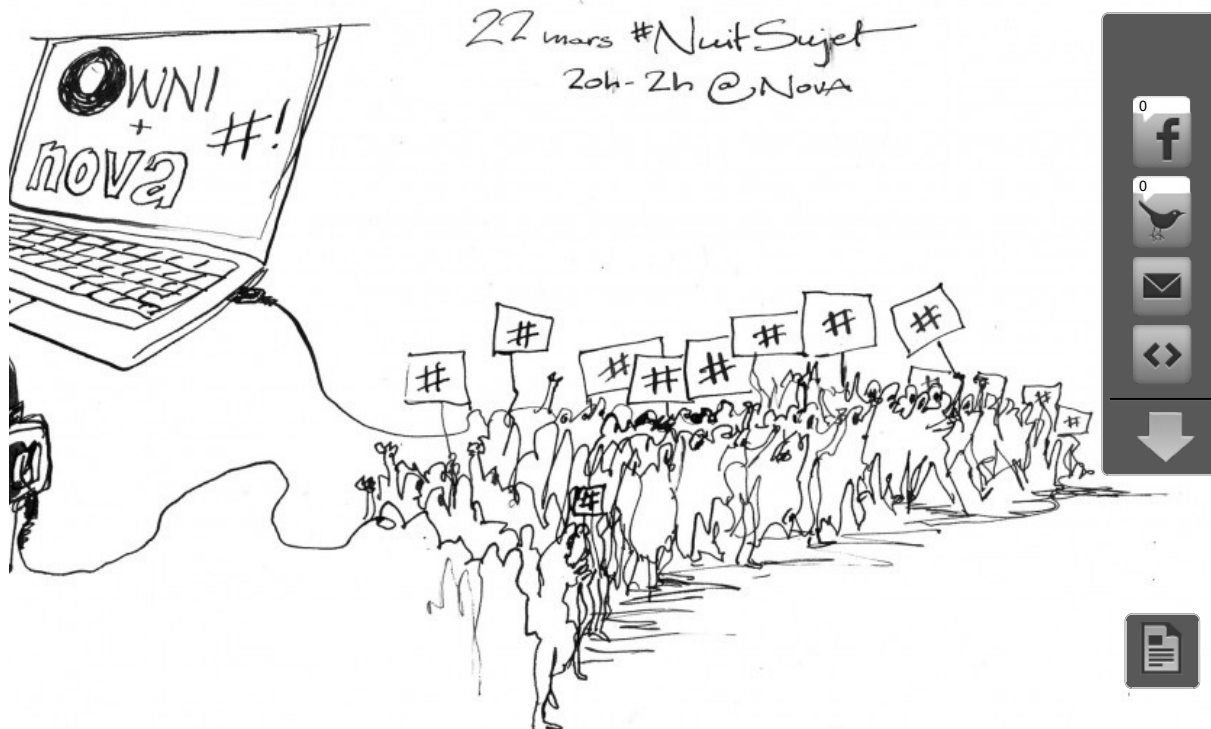 22 mars #NuitSujet
20h-2h @Nova
OWNI
+
nova
#!
0
f
0
#
#
#
#
#
#
#
#
#
#
#
#